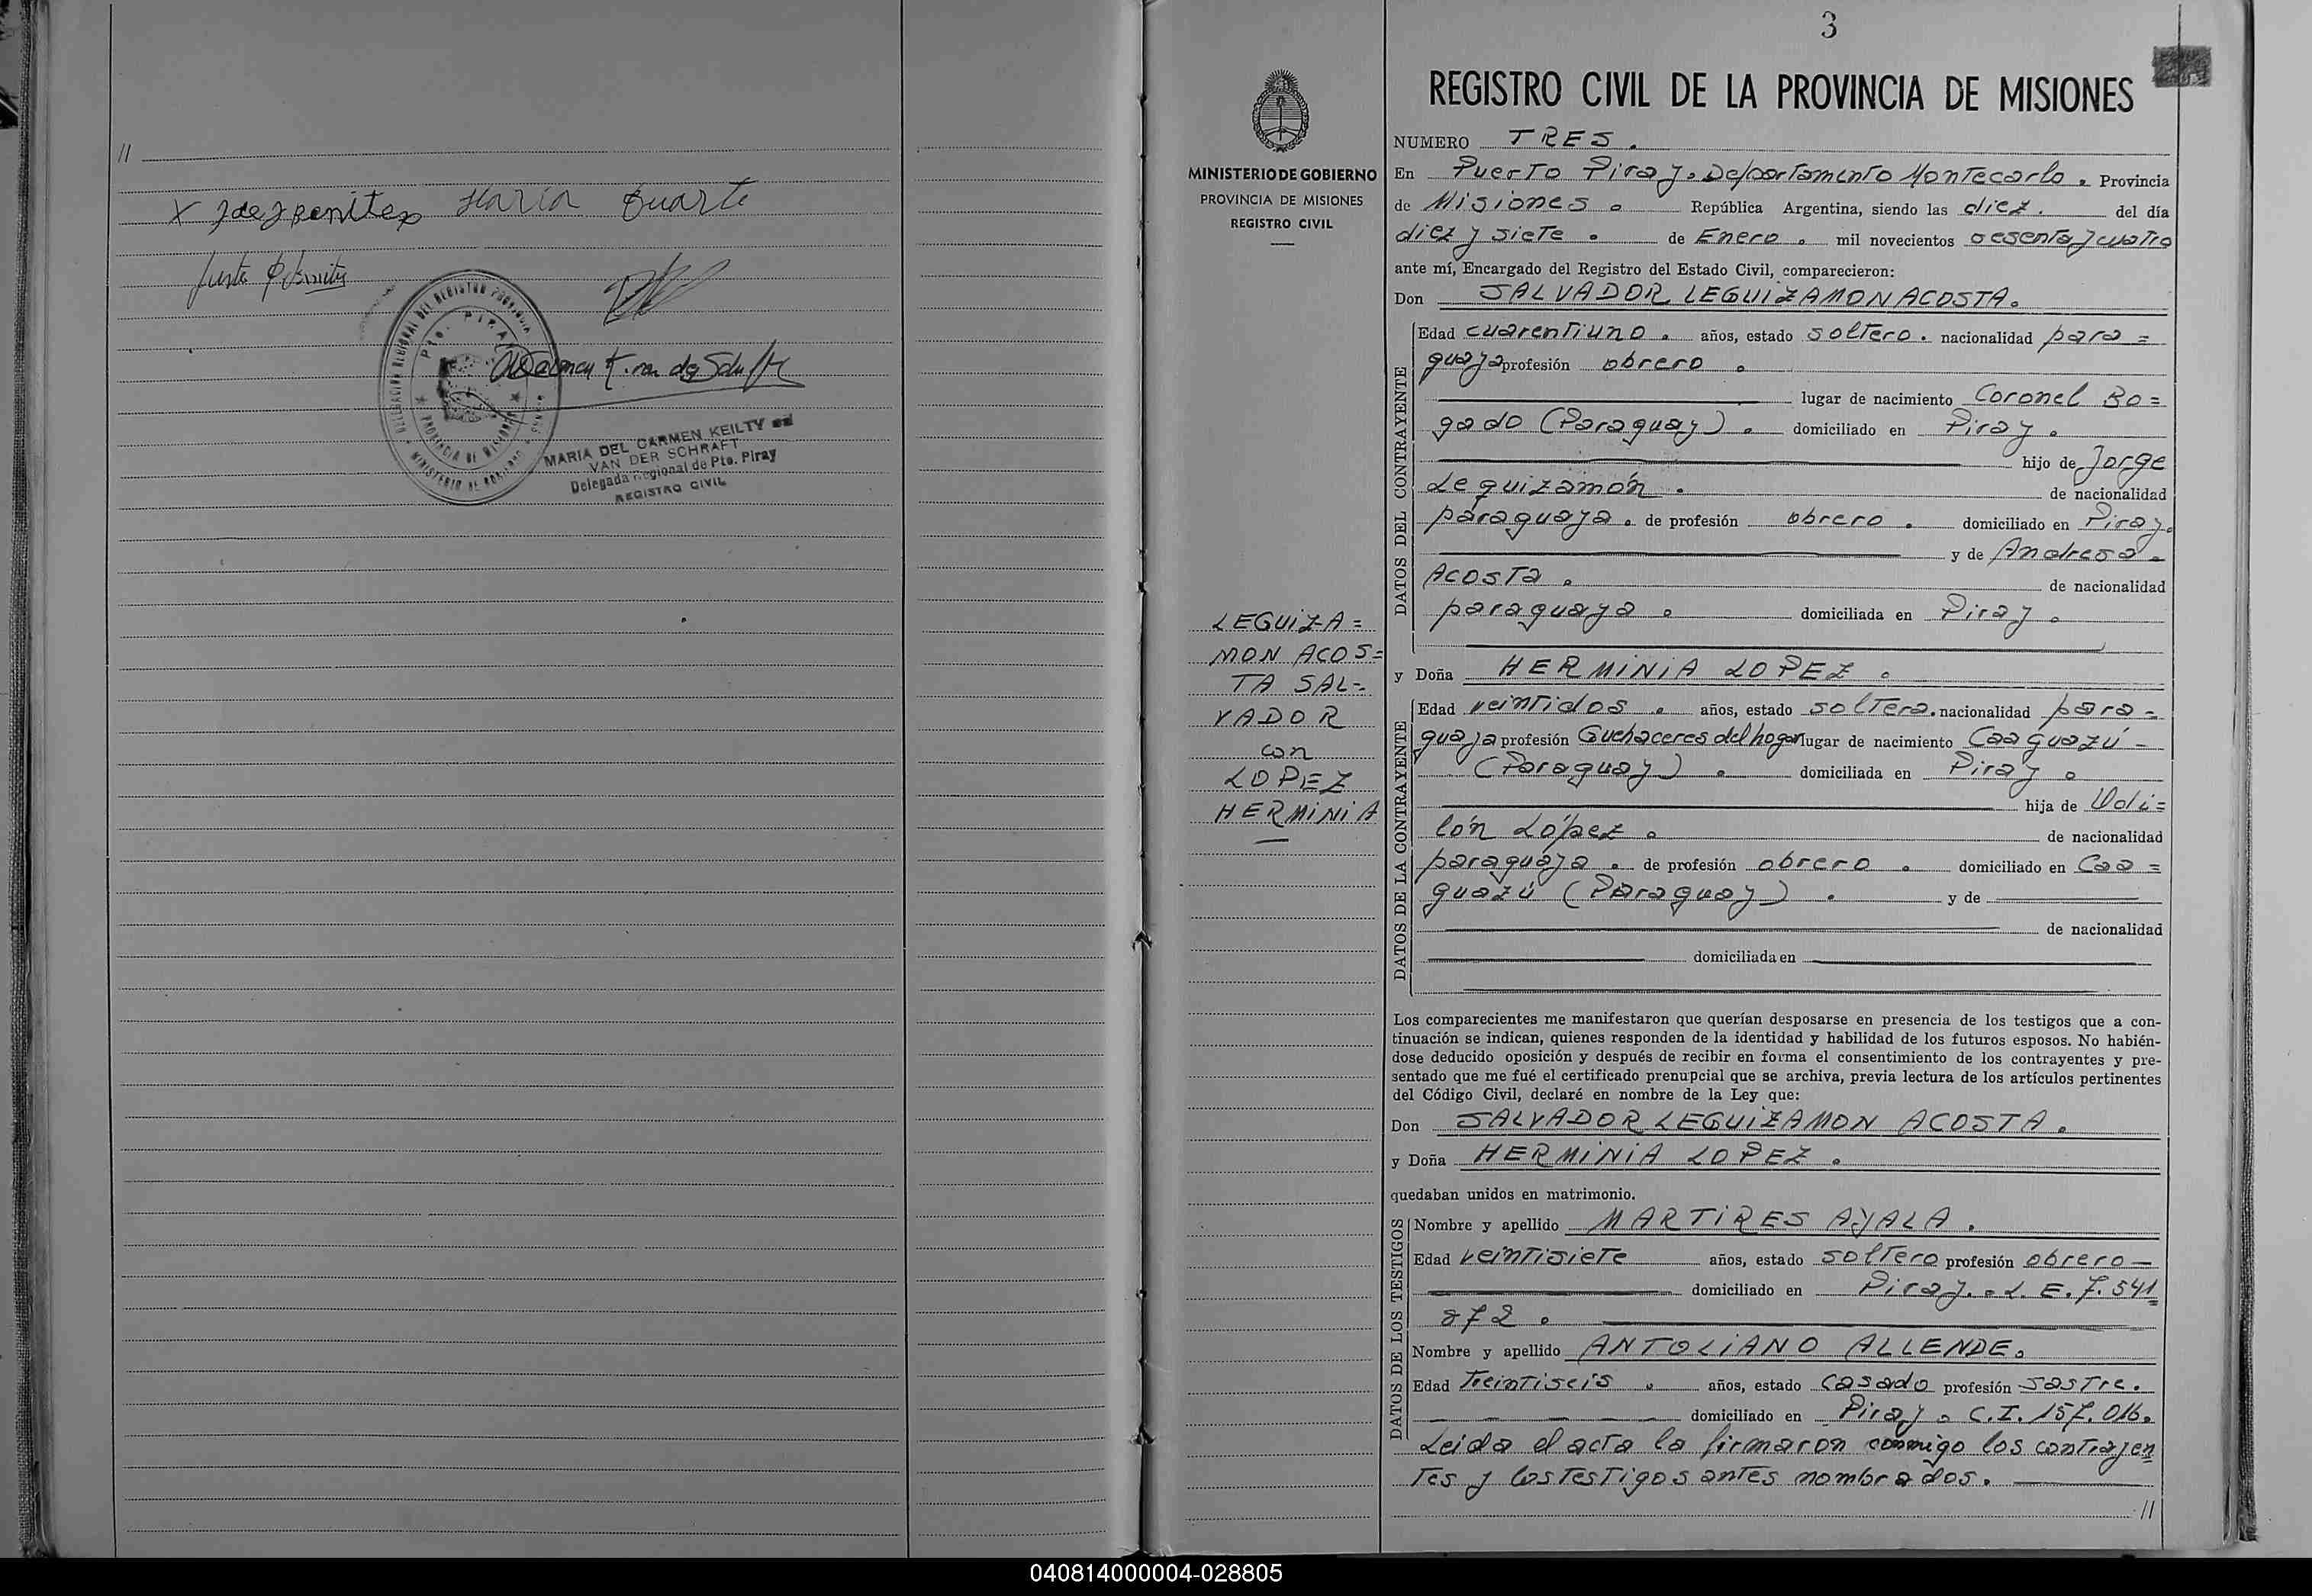 //
X J de J Benitez Maria Duarte
MINISTERIO DE GOBIERNO
PROVINCIA DE MISIONES
Pto. PIRAY
MARIA DEL CARMEN KEILTY de
VAN DER SCHRAFT
Delegada Regional de Pto. Piray
REGISTRO CIVIL
MINISTERIO DE GOBIERNO
PROVINCIA DE MISIONES
REGISTRO CIVIL
LEGUIZA=
MON ACOS=
TA SAL=
VADOR
con
LOPEZ
HERMINIA
3
REGISTRO CIVIL DE LA PROVINCIA DE MISIONES
NUMERO TRES.
En Puerto Piray. Departamento Montecarlo. Provincia
de Misiones. República Argentina, siendo las diez. del día
diez y siete. de Enero. mil novecientos sesenta y cuatro
ante mí, Encargado del Registro del Estado Civil, comparecieron:
Don SALVADOR LEGUIZAMON ACOSTA.
DATOS DEL CONTRAYENTE
Edad cuarentiuno. años, estado soltero. nacionalidad para=
guaya profesión obrero.
lugar de nacimiento Coronel Bo=
gado (Paraguay). domiciliado en Piray.
hijo de Jorge
Leguizamón. de nacionalidad
paraguaya. de profesión obrero. domiciliado en Piray.
y de Andresa
Acosta. de nacionalidad
paraguaya. domiciliada en Piray.
y Doña HERMINIA LOPEZ.
DATOS DE LA CONTRAYENTE
Edad veintidos. años, estado soltera. nacionalidad para=
guaya profesión Quehaceres del hogar lugar de nacimiento Caaguazú
(Paraguay). domiciliada en Piray.
hija de
lón López. de nacionalidad
paraguaya. de profesión obrero. domiciliado en Caa=
guazú (Paraguay). y de
de nacionalidad
domiciliada en
Los comparecientes me manifestaron que querían desposarse en presencia de los testigos que a con-
tinuación se indican, quienes responden de la identidad y habilidad de los futuros esposos. No habién-
dose deducido oposición y después de recibir en forma el consentimiento de los contrayentes y pre-
sentado que me fué el certificado prenupcial que se archiva, previa lectura de los artículos pertinentes
del Código Civil, declaré en nombre de la Ley que:
Don SALVADOR LEGUIZAMON ACOSTA.
y Doña HERMINIA LOPEZ.
quedaban unidos en matrimonio.
DATOS DE LOS TESTIGOS
Nombre y apellido MARTIRES AYALA.
Edad veintisiete años, estado soltero profesión obrero
domiciliado en Piray. L. E. 7.541
872.
Nombre y apellido ANTOLIANO ALLENDE.
Edad treintiseis. años, estado casado profesión sastre.
domiciliado en Piray. C.I. 157.016.
Leida el acta la firmaron conmigo los contrayen
tes y los testigos antes nombrados.
//
040814000004-028805